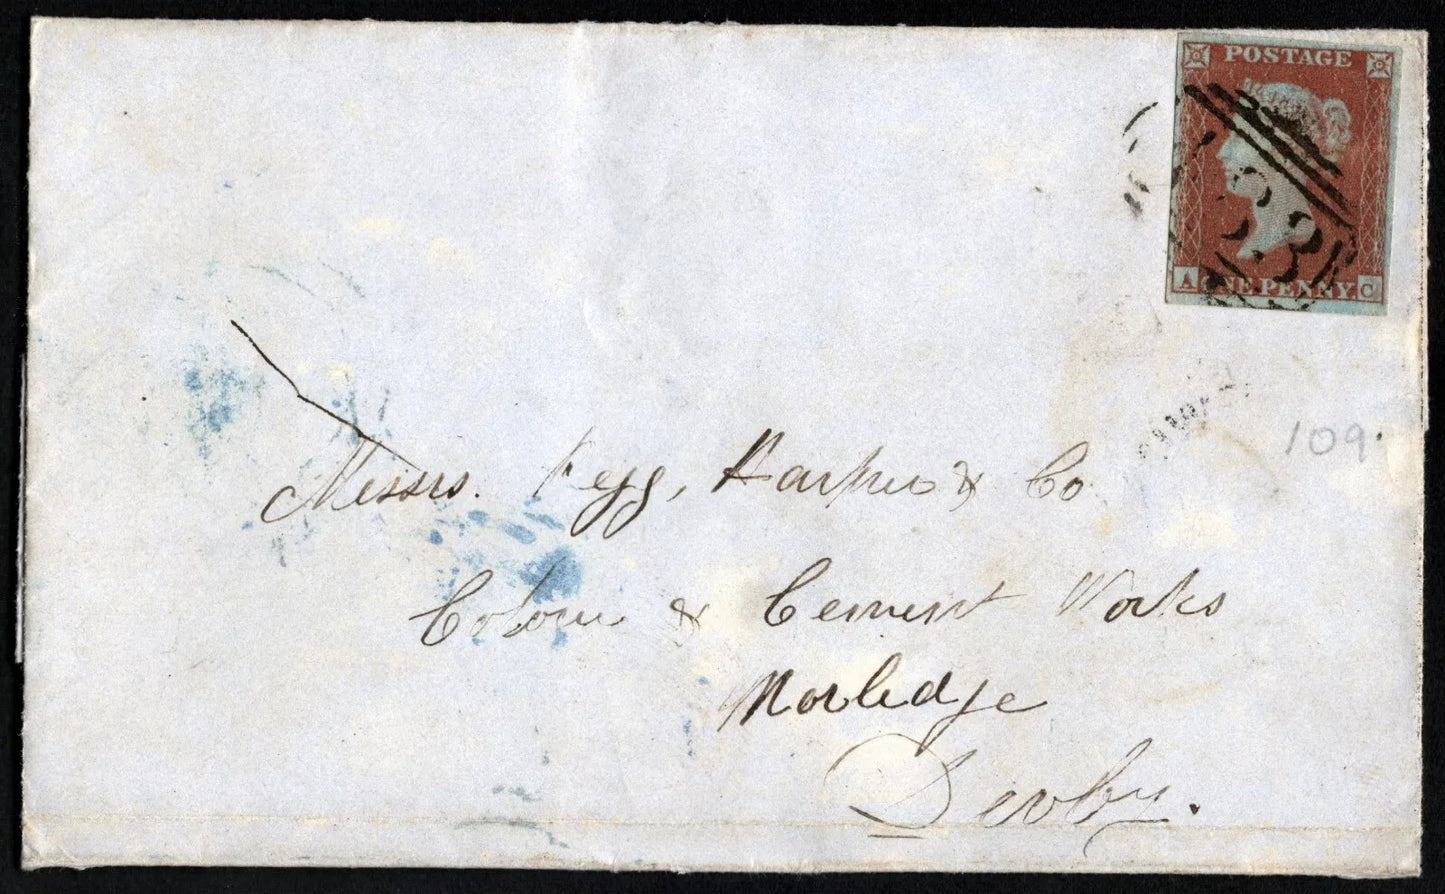 POSTAGE
A ONE PENNY C
109.
Messrs. Pegg, Harper & Co
Colour & Cement Works
Morledge
Derby.